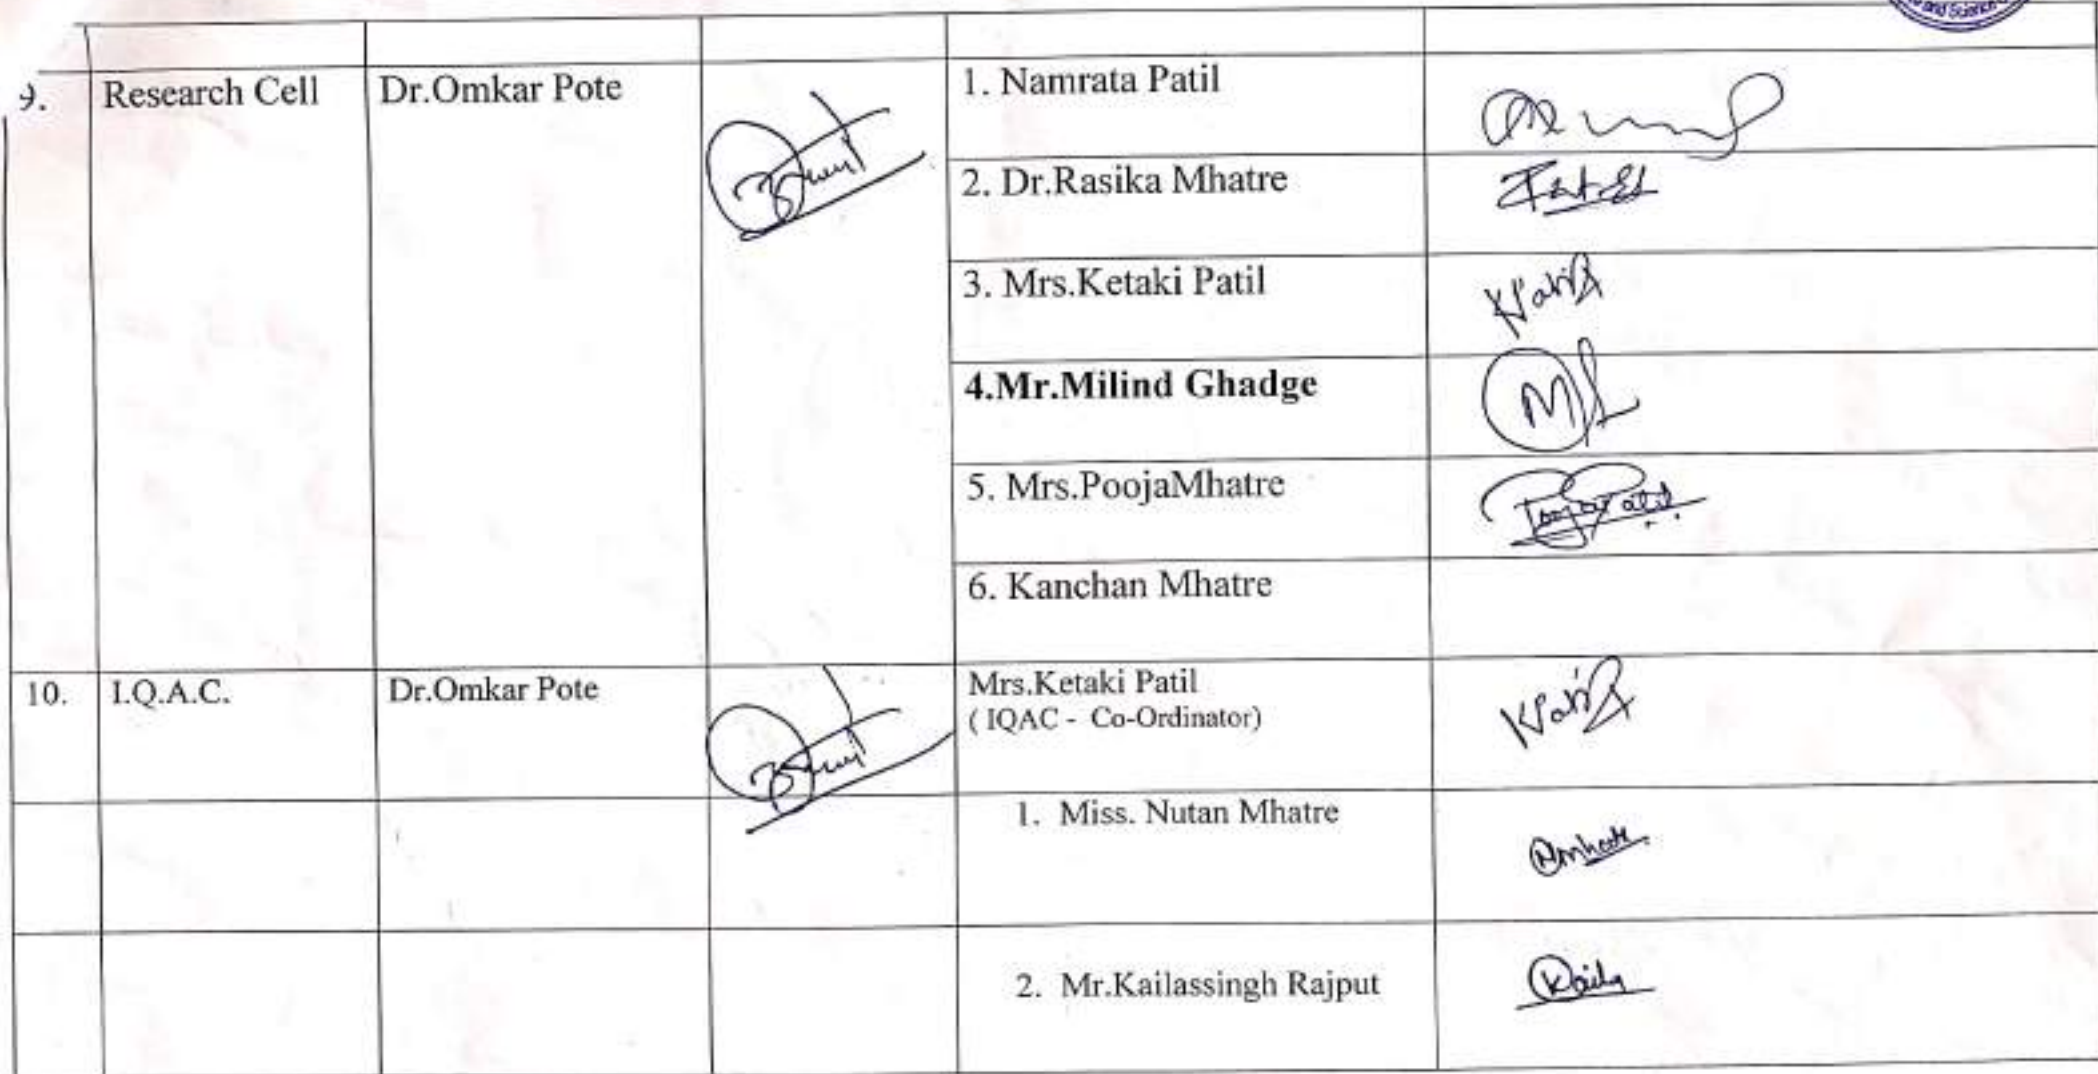 and Science
9. Research Cell Dr.Omkar Pote 1. Namrata Patil
2. Dr.Rasika Mhatre
3. Mrs.Ketaki Patil
KPatil
4.Mr.Milind Ghadge
5. Mrs.PoojaMhatre
PoojaPatil
6. Kanchan Mhatre
10. I.Q.A.C. Dr.Omkar Pote Mrs.Ketaki Patil
( IQAC - Co-Ordinator)
KPatil
1. Miss. Nutan Mhatre
Nmhatre
2. Mr.Kailassingh Rajput